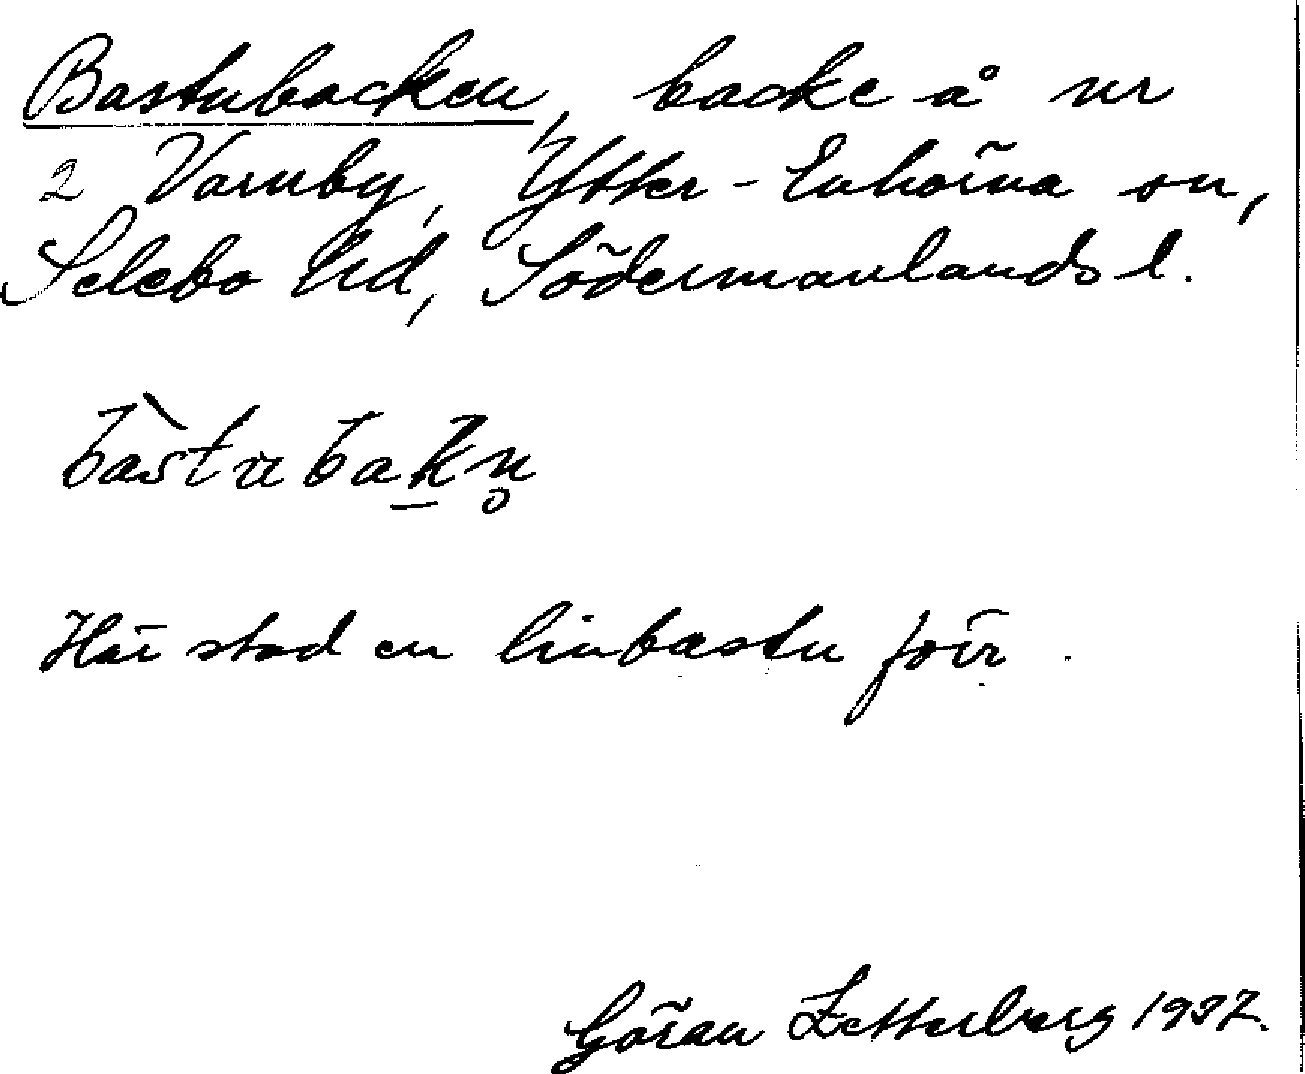 Bastubacken, backe å nr
2 Varnby, Ytter-Enhörna sn,
Selebo hd, Södermanlands l.
bàstubakn̥
Här stod en linbastu förr.
Göran Zetterberg 1937.